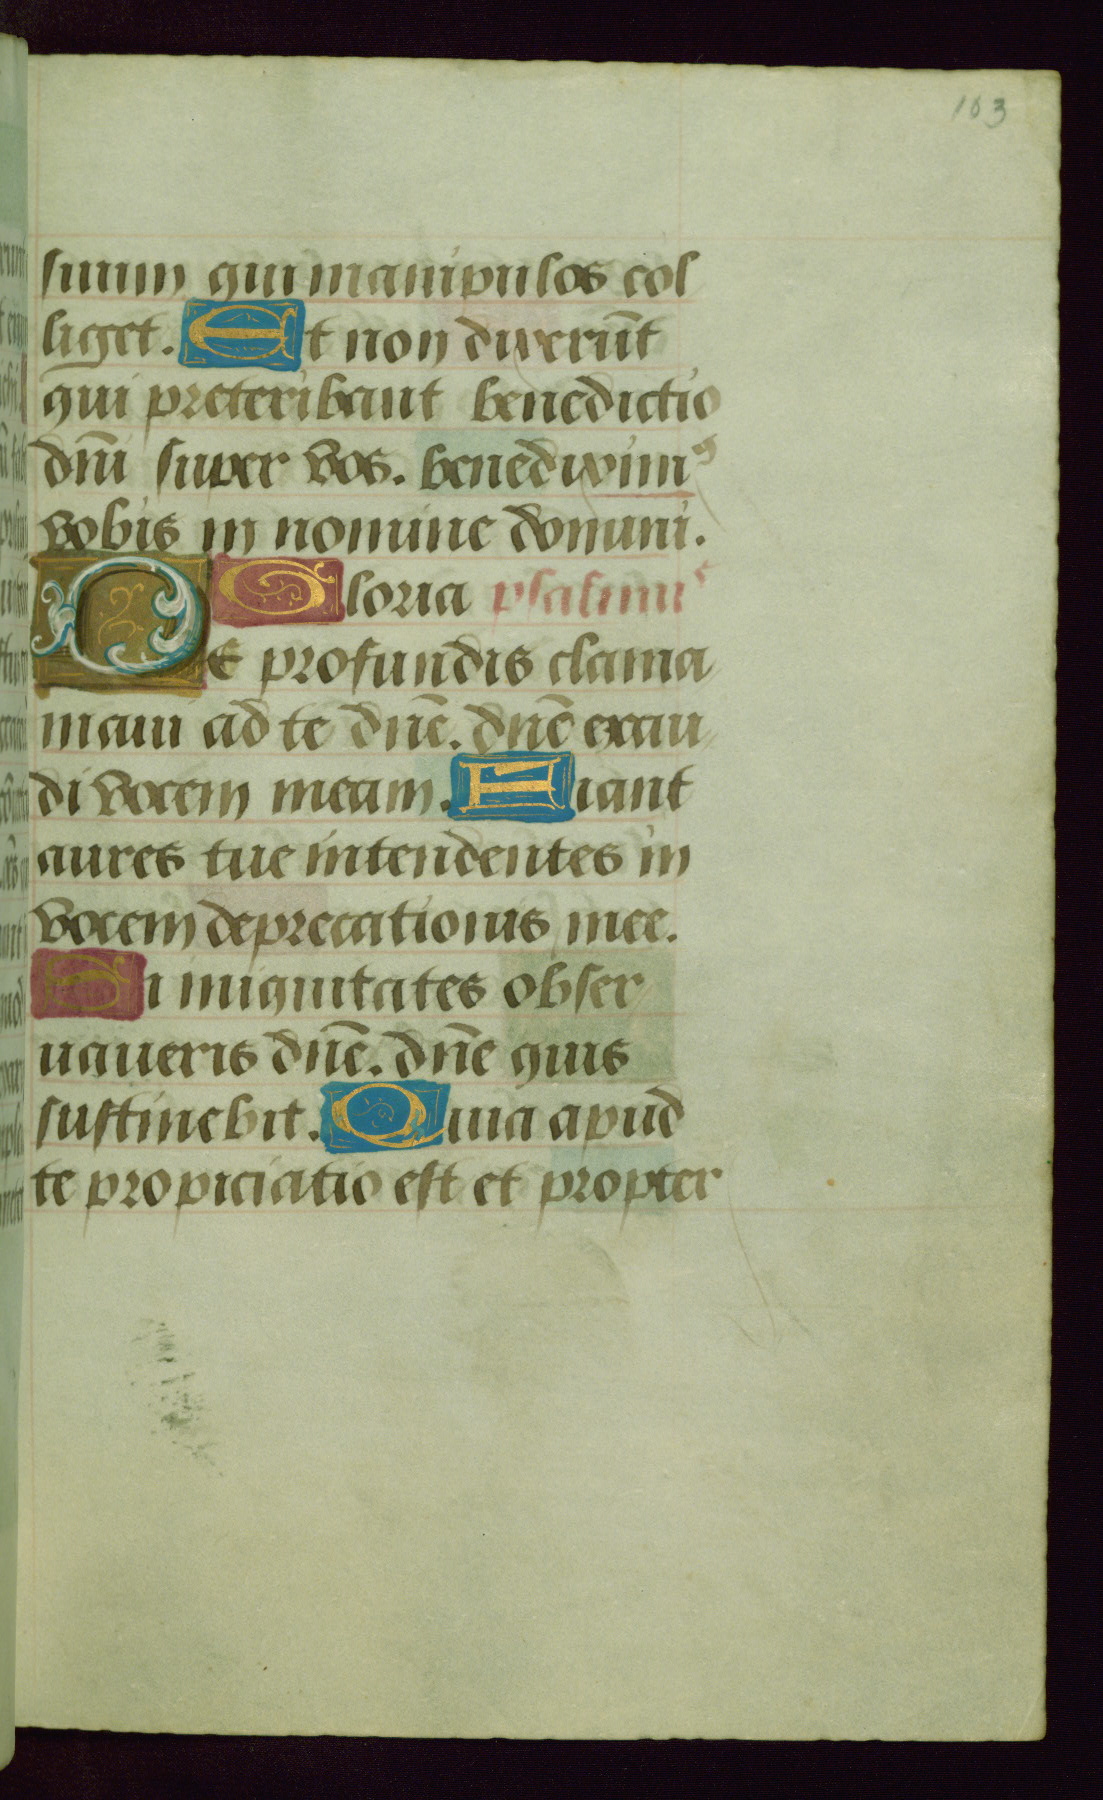 103
suum qui manipulos col
liget. Et non dixerūt
qui preteribant benedictio
dn̄i super vos. benediximꝰ
vobis in nomine domini.
Gloria psalmus
De profundis clama
maui ad te dn̄e. dn̄e exau
di vocem meam. Fiant
aures tue intendentes in
vocem deprecationis mee.
Si iniquitates obser
uaueris dn̄e. dn̄e quis
sustinebit. Quia apud
te propiciatio est et propter